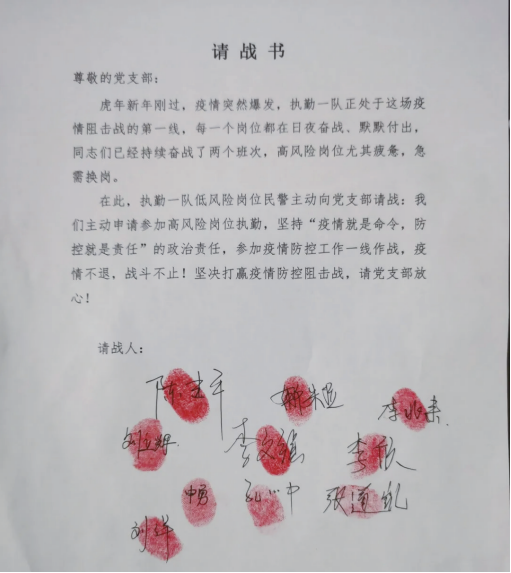 请战书
尊敬的党支部：
虎年新年刚过，疫情突然爆发，执勤一队正处于这场疫
情阻击战的第一线，每一个岗位都在日夜奋战、默默付出，
同志们已经持续奋战了两个班次，高风险岗位尤其疲惫，急
需换岗。
在此，执勤一队低风险岗位民警主动向党支部请战：我
们主动申请参加高风险岗位执勤，坚持“疫情就是命令，防
控就是责任”的政治责任，参加疫情防控工作一线作战，疫
情不退，战斗不止！坚决打赢疫情防控阻击战，请党支部放
心！
请战人：
李文强
刘洋